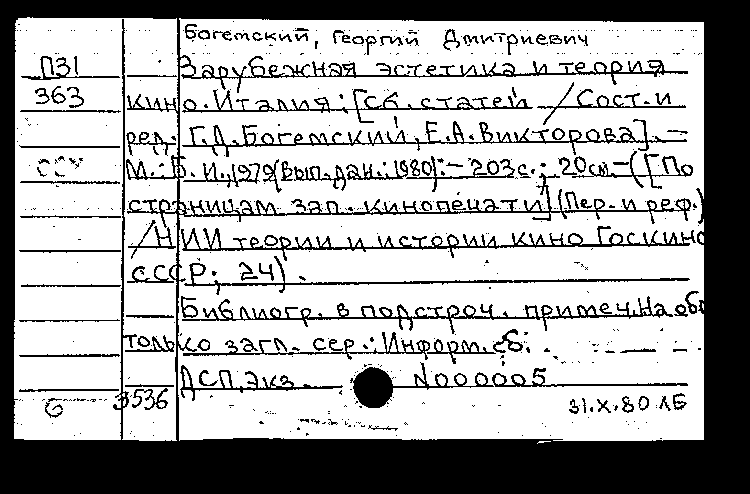 Богемский, Георгий Дмитриевич
П31 Зарубежная эстетика и теория
363 кино. Италия: [Сб. статей / Сост. и
ред. Г.Д.Богемский, Е.А.Викторова]. —
М.: Б. И., 1979 (вып. дан.: 1980). — 203 с.; 20 см. — ([По
страницам зап. кинопечати] (Пер. и реф.)
/НИИ теории и истории кино Госкино
СССР; 24).
Библиогр. в подстроч. примеч. На обл.
только загл. сер.: Информ. сб.
ДСП. Экз. N000005
6 3536 31.X.80 ЛБ